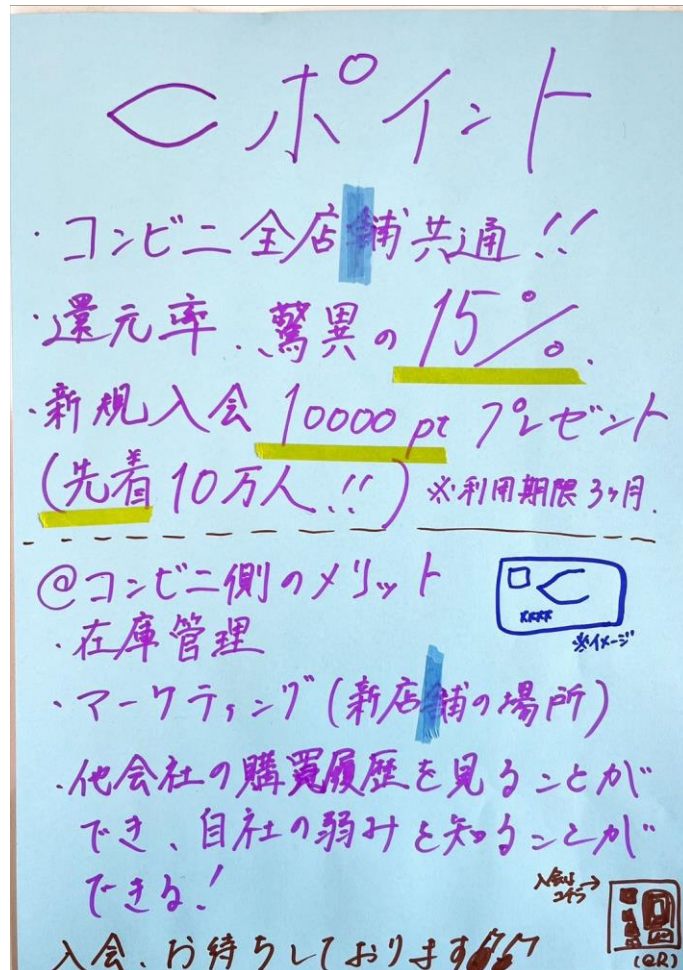 Cポイント
・コンビニ全店舗共通!!
・還元率、驚異の15%.
・新規入会10000ptプレゼント
(先着10万人!!) ※利用期限3ヶ月.
@コンビニ側のメリット
※イメージ
・在庫管理
・マーケティング(新店舗の場所)
・他会社の購買履歴を見ることが
でき、自社の弱みを知ることが
できる!
入会は
コチラ→
(QR)
入会、お待ちしております